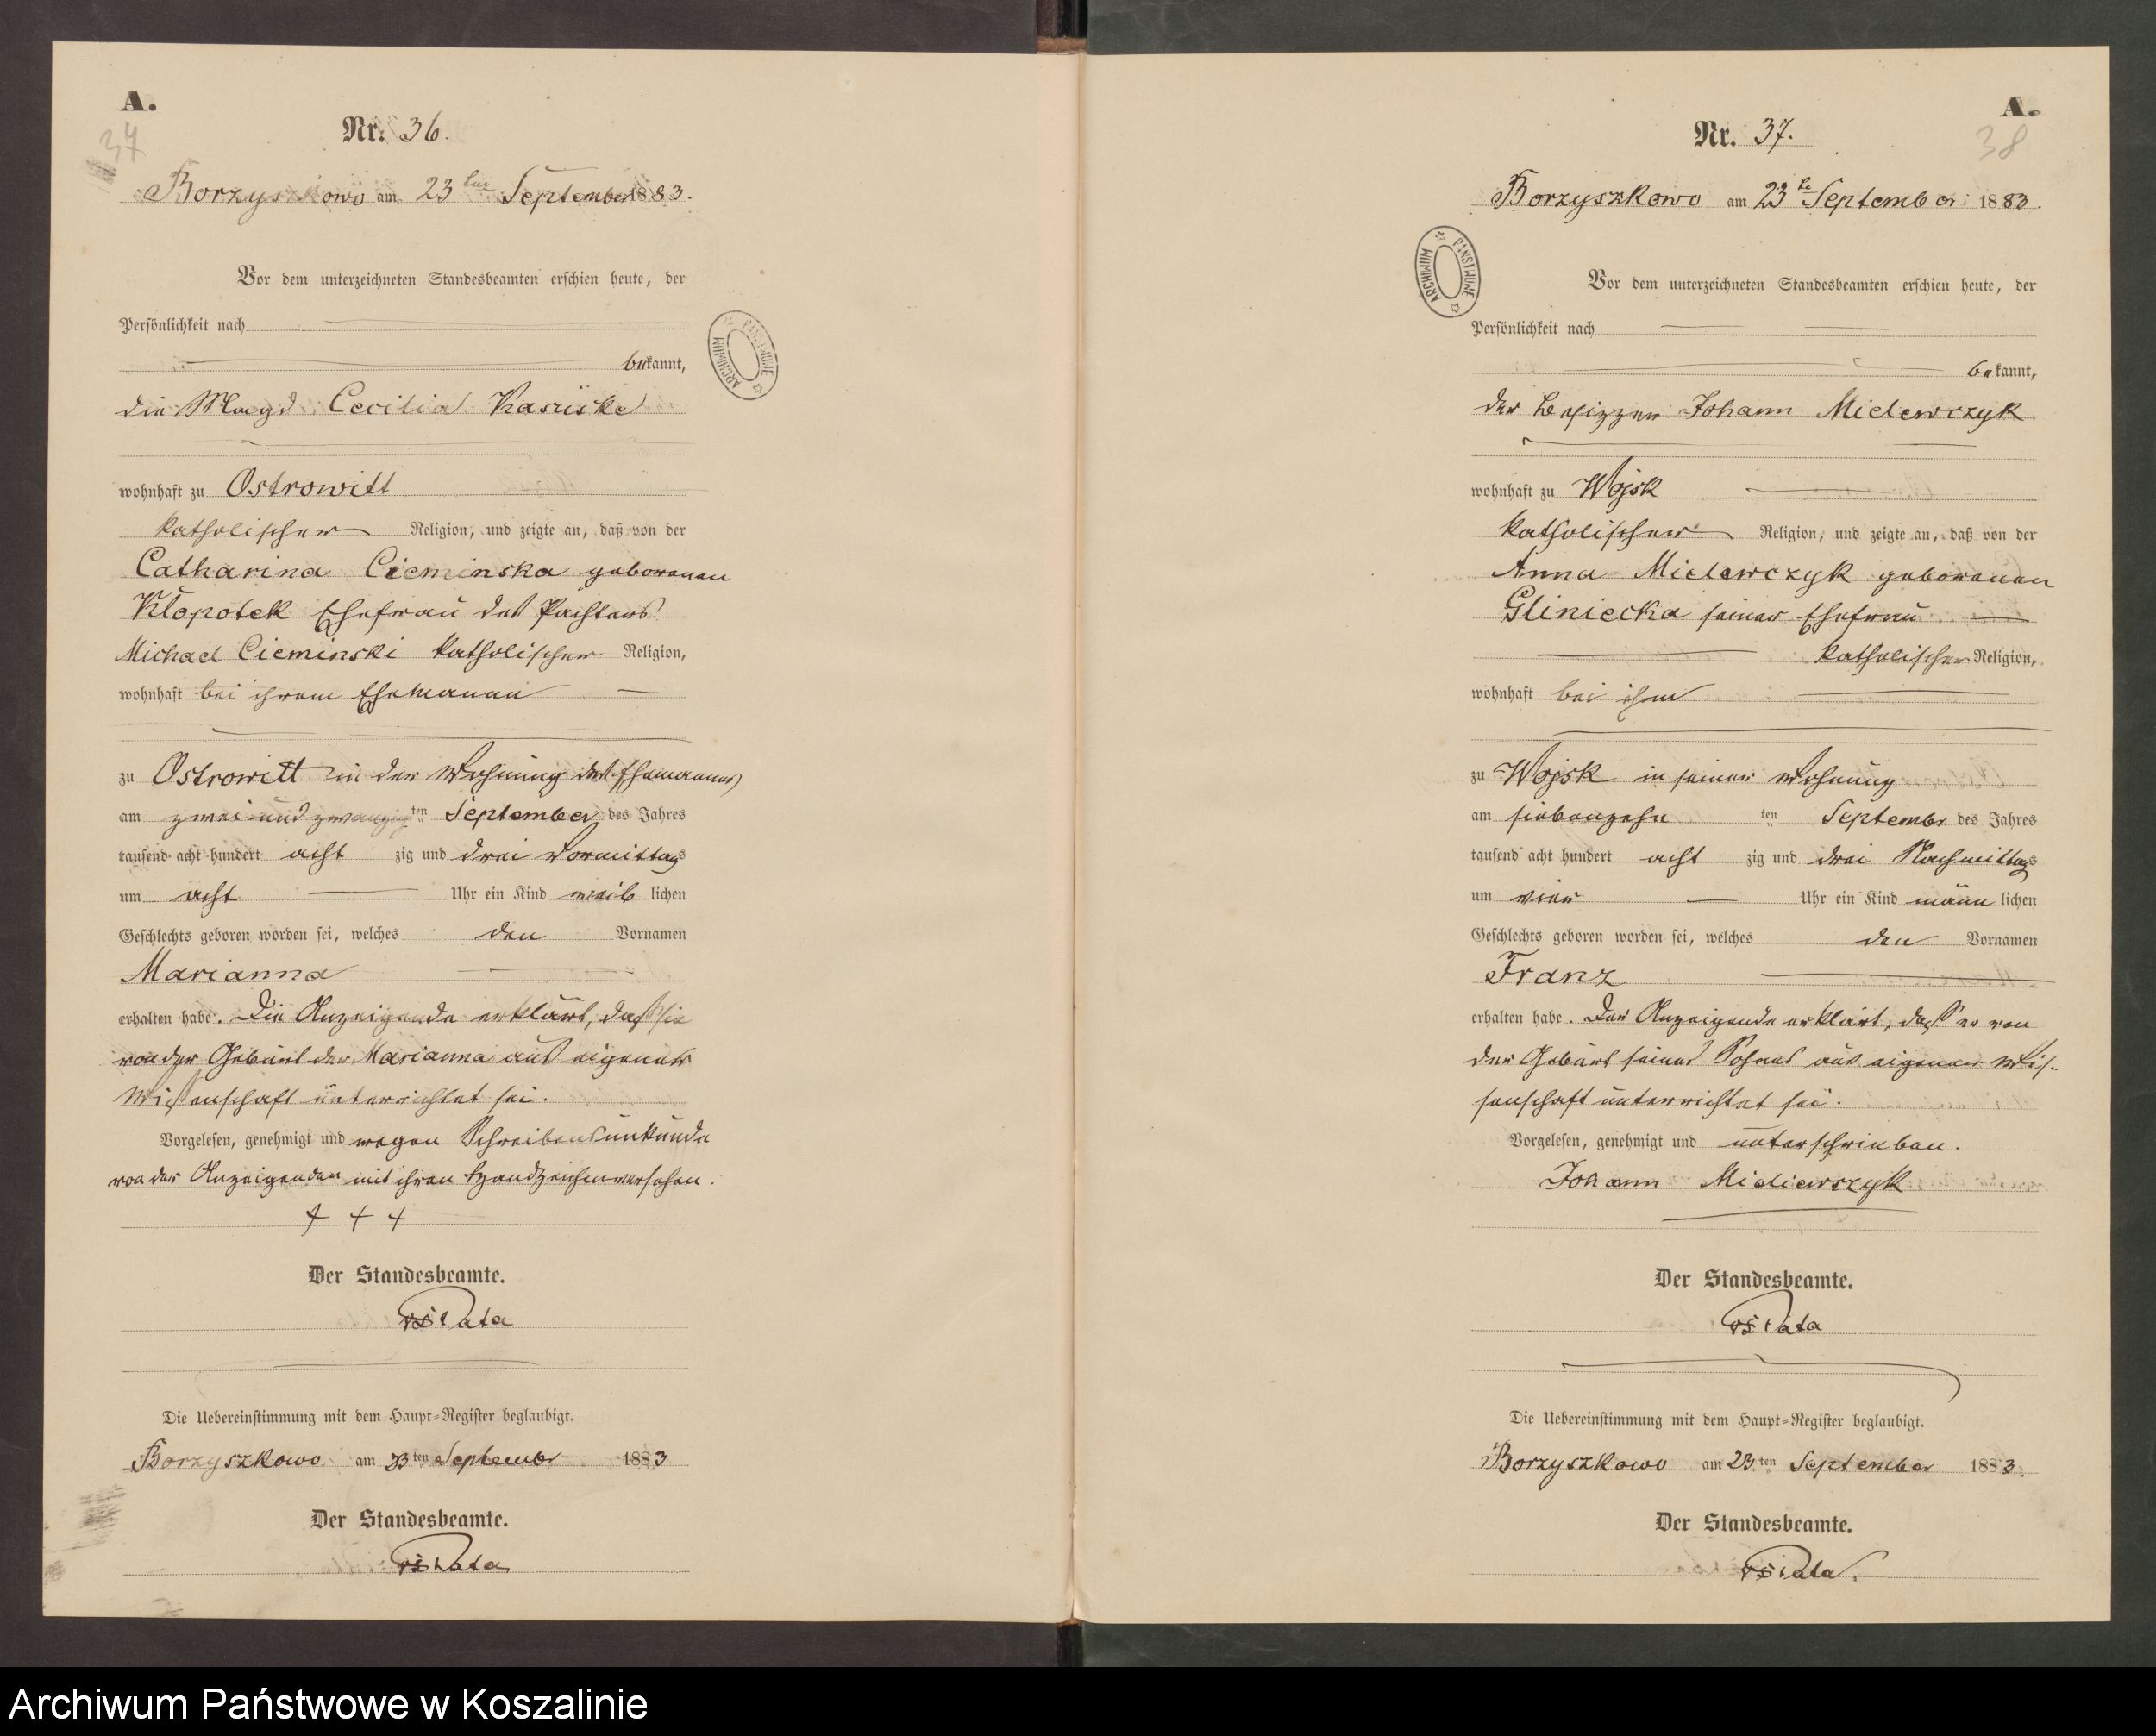 A.
37
Nr. 36.
Borzyszkowo am 23ten September 1883.
Vor dem unterzeichneten Standesbeamten erschien heute, der
Persönlichkeit nach
bekannt,
die Magd Cecilia
wohnhaft zu Ostrowitt
katholischer Religion, und zeigte an, daß von der
Catharina Cieminska geborenen
Klopotek Ehefrau des Pächters
Michael Cieminski katholischer Religion,
wohnhaft bei ihrem Ehemanne
zu Ostrowitt in der Wohnung des Ehemannes
am zwei und zwanzigten September des Jahres
tausend acht hundert acht zig und drei Vormittags
um acht Uhr ein Kind weib lichen
Geschlechts geboren worden sei, welches den Vornamen
Marianna
erhalten habe. Die Anzeigende erklärt, daß sie
von der Geburt der Marianna aus eigener
Wissenschaft unterrichtet sei.
Vorgelesen, genehmigt und wegen Schreibensunkunde
von der Anzeigenden mit ihren Handzeichen versehen.
+ + +
Der Standesbeamte.
Die Uebereinstimmung mit dem Haupt=Register beglaubigt.
Borzyszkowo am 23ten September 1883
Der Standesbeamte.
A.
38
Nr. 37.
Borzyszkowo am 23te September 1883.
ARCHIWUM PAŃSTWOWE
Vor dem unterzeichneten Standesbeamten erschien heute, der
Persönlichkeit nach
bekannt,
der Besitzer Johann Mielewczyk
wohnhaft zu Wojsk
katholischer Religion, und zeigte an, daß von der
Anna Mielewczyk geborenen
Gliniecka seiner Ehefrau
katholischer Religion,
wohnhaft bei ihm
zu Wojsk in seiner Wohnung
am siebenzehn ten September des Jahres
tausend acht hundert acht zig und drei Nachmittags
um vier Uhr ein Kind männ lichen
Geschlechts geboren worden sei, welches den Vornamen
Franz
erhalten habe. Der Anzeigende erklärt, daß er von
der Geburt seines Sohnes aus eigener Wis-
senschaft unterrichtet sei.
Vorgelesen, genehmigt und unterschrieben.
Johann Mieliewczyk
Der Standesbeamte.
Die Uebereinstimmung mit dem Haupt=Register beglaubigt.
Borzyszkowo am 23ten September 1883.
Der Standesbeamte.
Archiwum Państwowe w Koszalinie